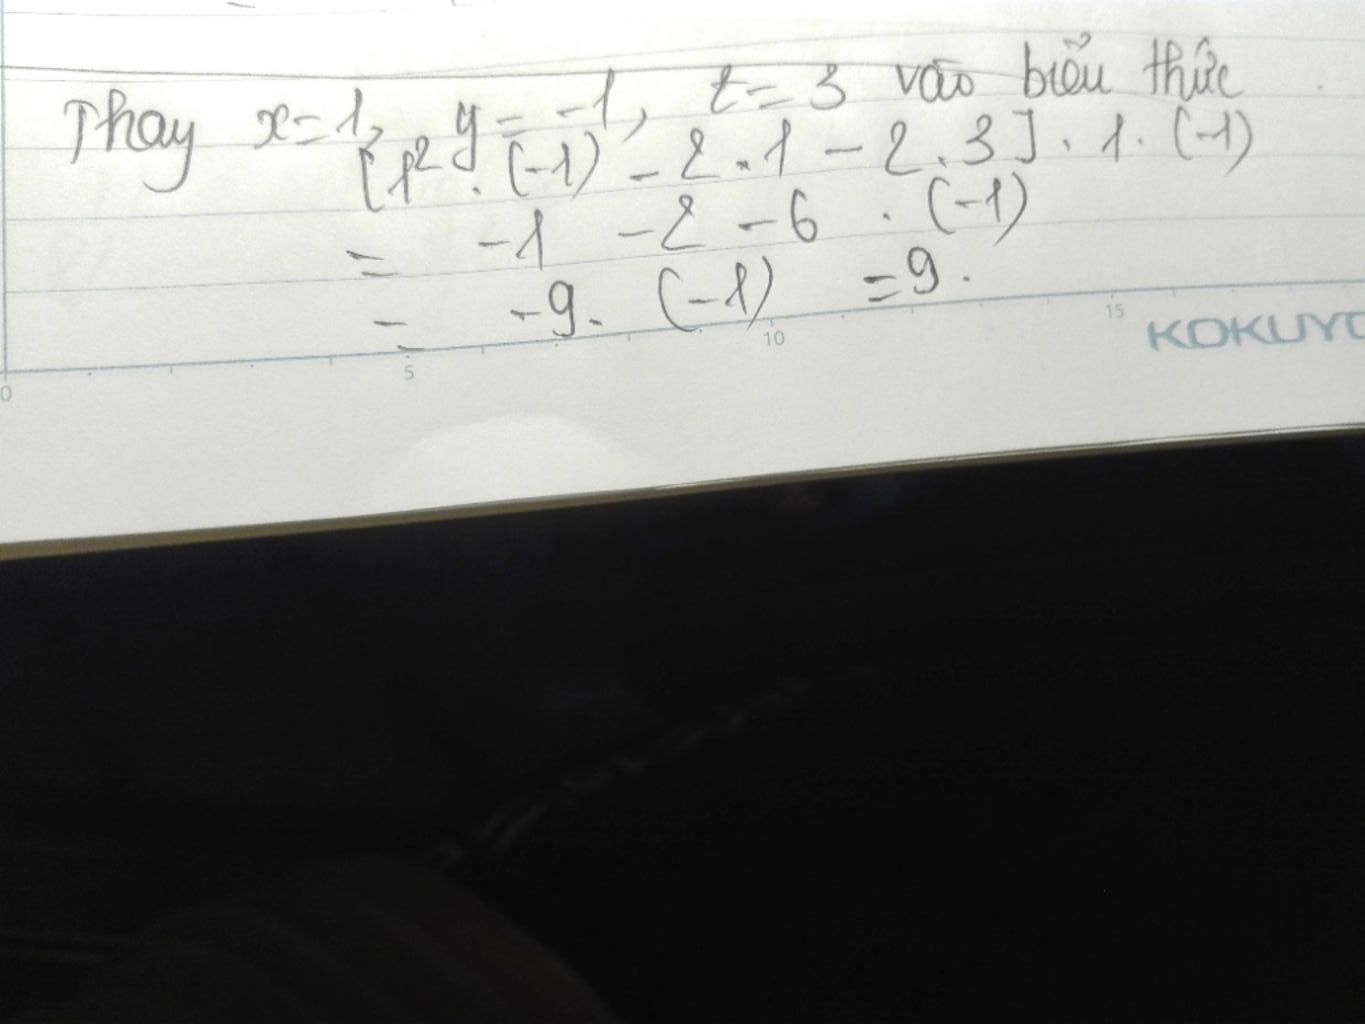 Thay x=1, y = -1, t = 3 vào biểu thức
[1² . (-1) - 2 . 1 - 2 . 3] . 1 . (-1)
= -1 - 2 - 6 . (-1)
= -9 . (-1) = 9 .
0 5 10 15 KOKUYO